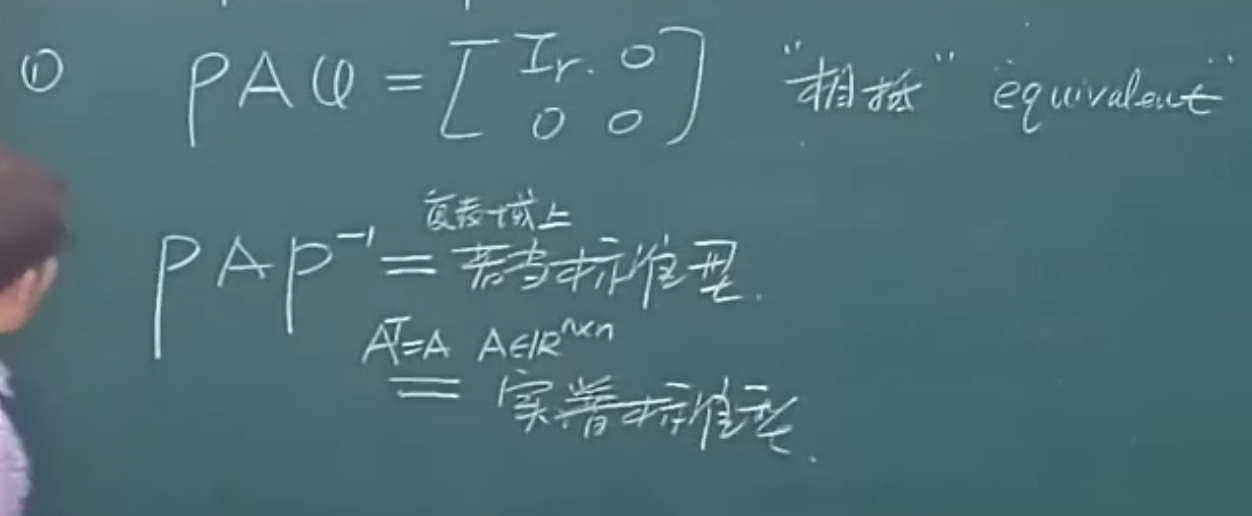 ① PAQ = [ Ir. 0 "相抵" "equivalent"
0 0 ]
复数域上
PAP⁻¹ = 若当标准型.
Aᵀ=A A∈ℝⁿˣⁿ
= 实普标准型.